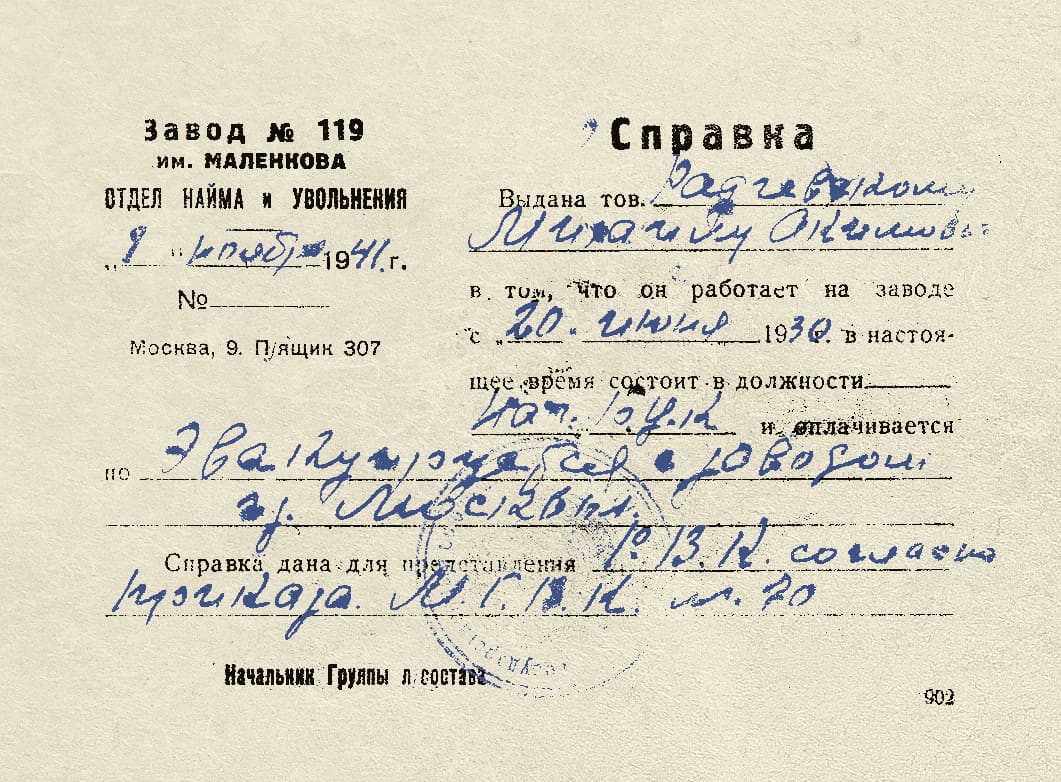 Завод № 119
им. МАЛЕНКОВА
ОТДЕЛ НАЙМА и УВОЛЬНЕНИЯ
„8" ноября 1941 г.
№
Москва, 9. П/ящик 307
Справка
Выдана тов.
Михаилу Акимов
в том, что он работает на заводе
с „20" июня 1930 г. в настоя-
щее время состоит в должности
Нач. и оплачивается
по Эвакуируется с заводом
из Москвы.
Справка дана для представления Р.В.К. согласно
приказа М.Г.В.К. №. 70
Начальник Группы л/состава
902